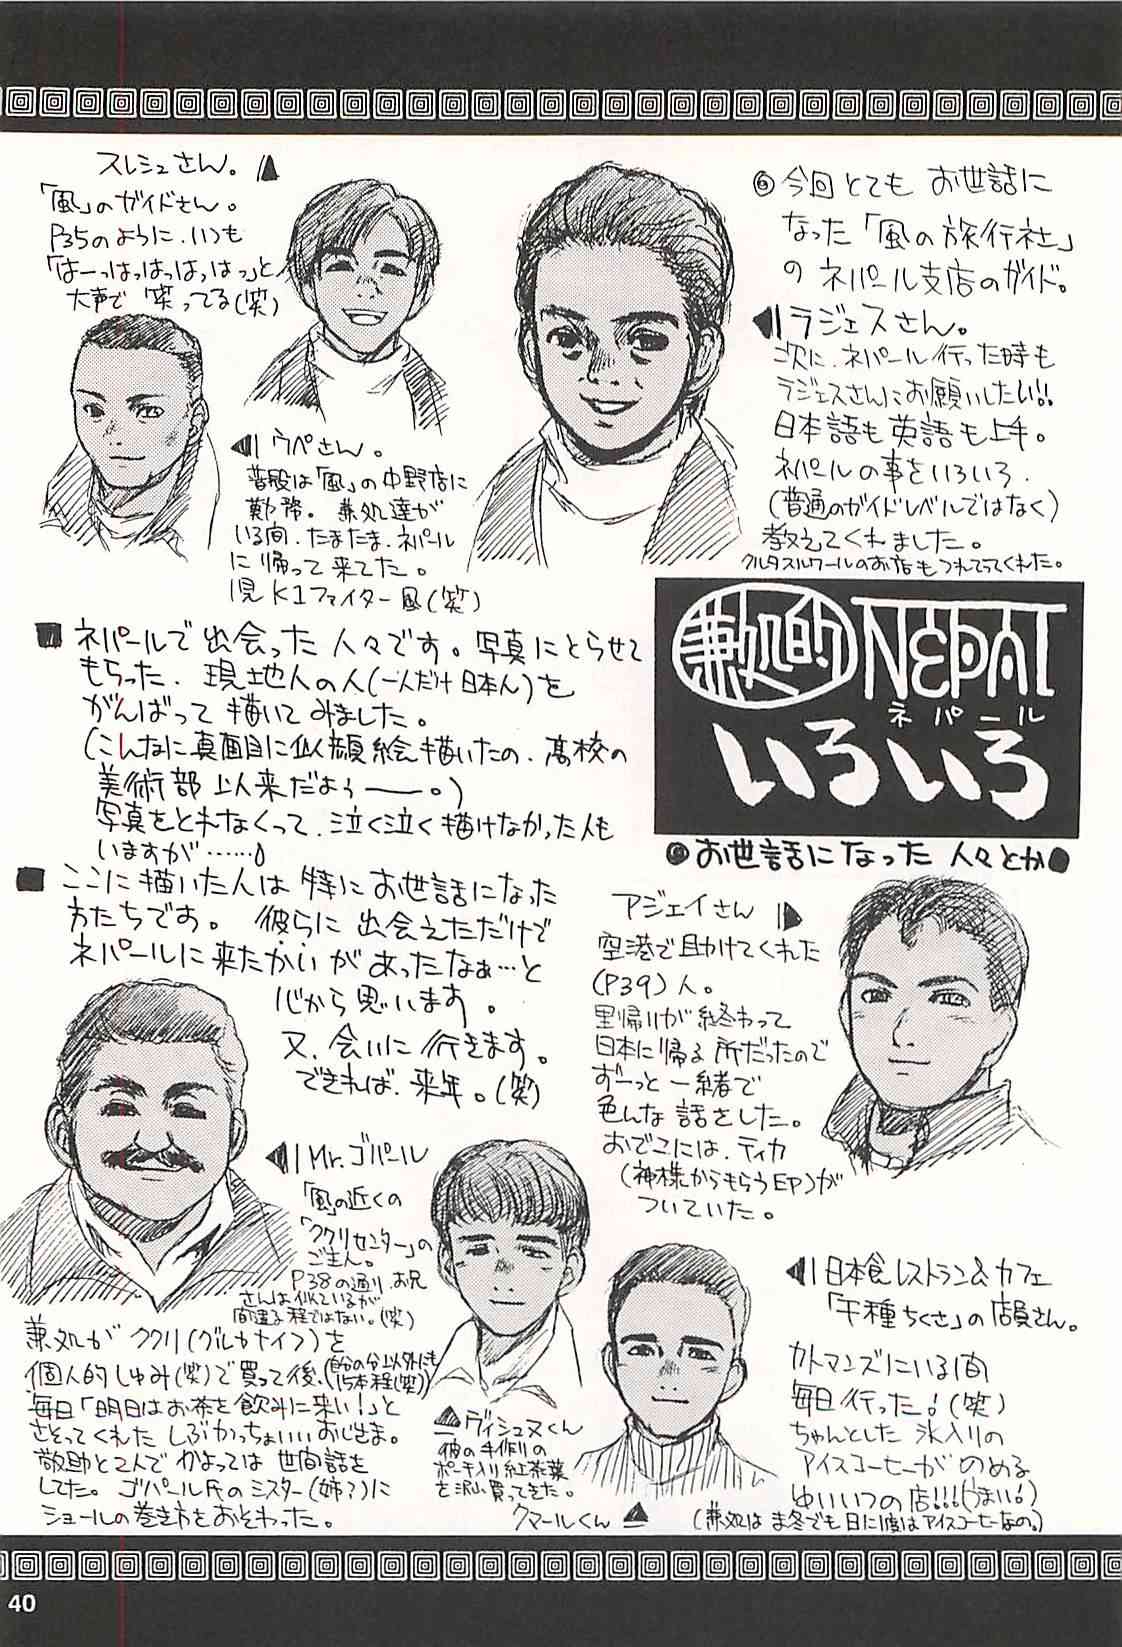 スレシュさん。
「風」のガイドさん。
P35のように、いつも
「はーっはっはっはっはっ」と
大声で 笑ってる(笑)
⑥今回とても お世話に
なった「風の旅行社」
の ネパール支店のガイド。
ラジェスさん。
次に、ネパール行った時も
ラジェスさんにお願いしたい!!
日本語も英語も上手。
ネパールの事をいろいろ、
(普通のガイドレベルではなく)
教えてくれました。
クルタスルワールのお店もつれてってくれた。
ウペさん。
普段は「風」の中野店に
勤務。兼処達が
いる間、たまたま、ネパール
に帰って来てた。
1見K1ファイター風(笑)
兼処的 NEPAL
ネパール
いろいろ
お世話になった 人々とか
■ネパールで出会った人々です。写真にとらせて
もらった、現地人の人(一人だけ日本人)を
がんばって描いてみました。
(こんなに真面目に似顔絵描いたの、高校の
美術部以来だよぅー。)
写真をとれなくって、泣く泣く描けなかった人も
いますが……
■ここに描いた人は特にお世話になった
方たちです。彼らに出会えただけで
ネパールに来たかいがあったなぁ…と
心から思います。
又、会いに行きます。
できれば、来年。(笑)
アジェイさん
空港で助けてくれた
(P39)人。
里帰りが終わって
日本に帰る所だったので
ずーっと一緒で
色んな話をした。
おでこには、ティカ
(神様からもらう印)が
ついていた。
Mr.ゴパール
「風」の近くの
「ククリセンター」の
ご主人。
P38の通り、お兄
さんは似ているが
間違う程ではない。(笑)
兼処がククリ(グルカナイフ)を
個人的しゅみ(笑)で買って後、(自分の分以外にも
15本程(笑))
毎日「明日はお茶を飲みに来い!」と
さそってくれたしぶかっちょいいおじさま。
敬助と2人でかよっては世間話を
してた。ゴパール氏のシスター(姉?)に
ショールの巻き方をおそわった。
ヴィシュヌくん
彼の手作りの
ポーチ入り紅茶葉
を沢山買ってきた。
クマールくん
日本食レストラン&カフェ
「千種ちくさ」の店員さん。
カトマンズにいる間
毎日行った!(笑)
ちゃんとした氷入りの
アイスコーヒーがのめる
ゆいいつの店!!!(うまい!)
(兼処は真冬でも日に1度はアイスコーヒーなの。)
40